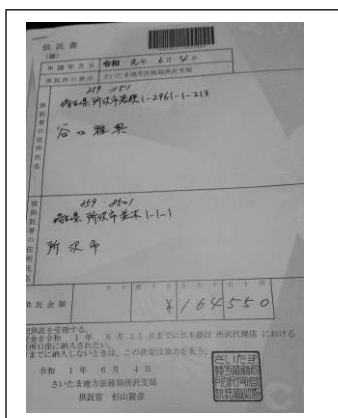 供託書
(雑)
申請年月日 令和 元年 6月 4日
供託所の表示 さいたま地方法務局所沢支局
供託者の住所氏名
359-1151
埼玉県所沢市若狭1-2961-1-213
谷口雅典
被供託者の住所氏名
359-8501
埼玉県所沢市並木1-1-1
所沢市
供託金額 ¥164550
供託を受理する。
金を令和 1年 6月11日までに日本銀行 所沢代理店 における
口座に納入されたい。
までに納入しないときは、この決定は効力を失う。
令和 1年 6月 4日
さいたま地方法務局所沢支局
供託官 杉山賀彦